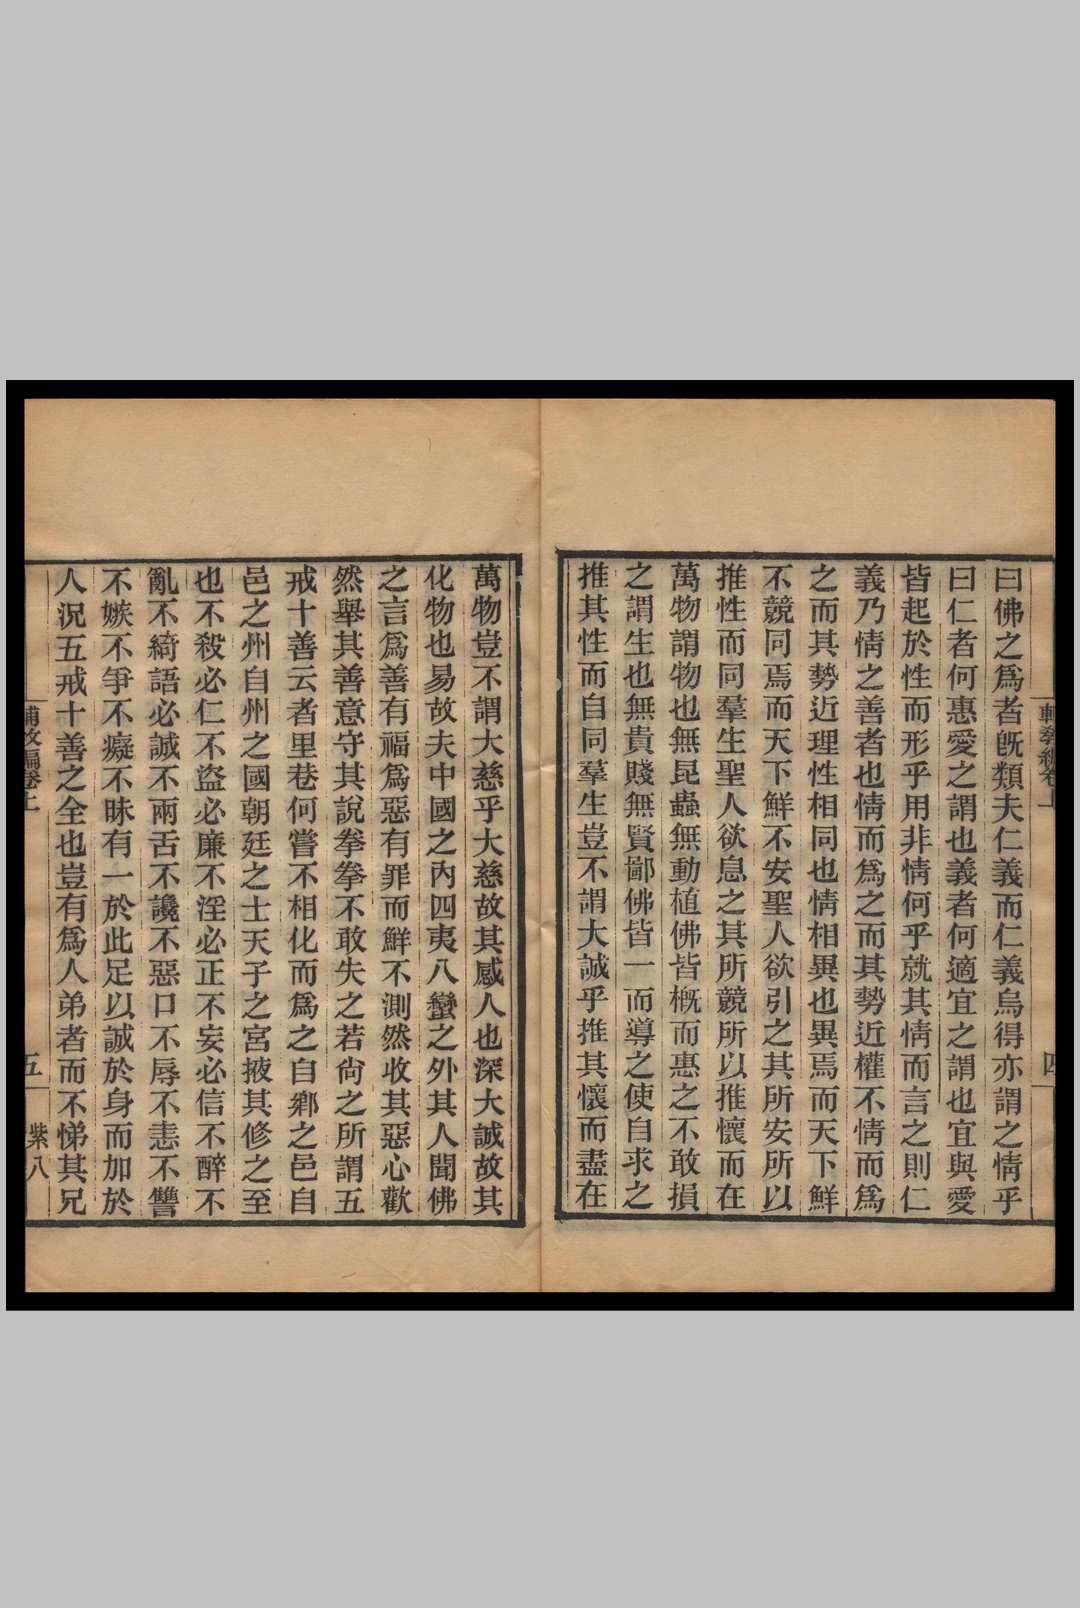 曰佛之爲者旣類夫仁義而仁義烏得亦謂之情乎
曰仁者何惠愛之謂也義者何適宜之謂也宜與愛
皆起於性而形乎用非情何乎就其情而言之則仁
義乃情之善者也情而爲之而其勢近權不情而爲
之而其勢近理性相同也情相異也異焉而天下鮮
不競同焉而天下鮮不安聖人欲引之其所安所以
推性而同羣生聖人欲息之其所競所以推懷而在
萬物謂物也無昆蟲無動植佛皆槪而惠之不敢損
之謂生也無貴賤無賢鄙佛皆一而導之使自求之
推其性而自同羣生豈不謂大誠乎推其懷而盡在
萬物豈不謂大慈乎大慈故其感人也深大誠故其
化物也易故夫中國之內四夷八蠻之外其人聞佛
之言爲善有福爲惡有罪而鮮不測然收其惡心歡
然舉其善意守其說拳拳不敢失之若尙之所謂五
戒十善云者里巷何嘗不相化而爲之自鄕之邑自
邑之州自州之國朝廷之士天子之宮掖其修之至
也不殺必仁不盜必廉不淫必正不妄必信不醉不
亂不綺語必誠不兩舌不讒不惡口不辱不恚不讐
不嫉不爭不癡不昧有一於此足以誠於身而加於
人況五戒十善之全也豈有爲人弟者而不悌其兄
輔敎編卷上
五
紫八